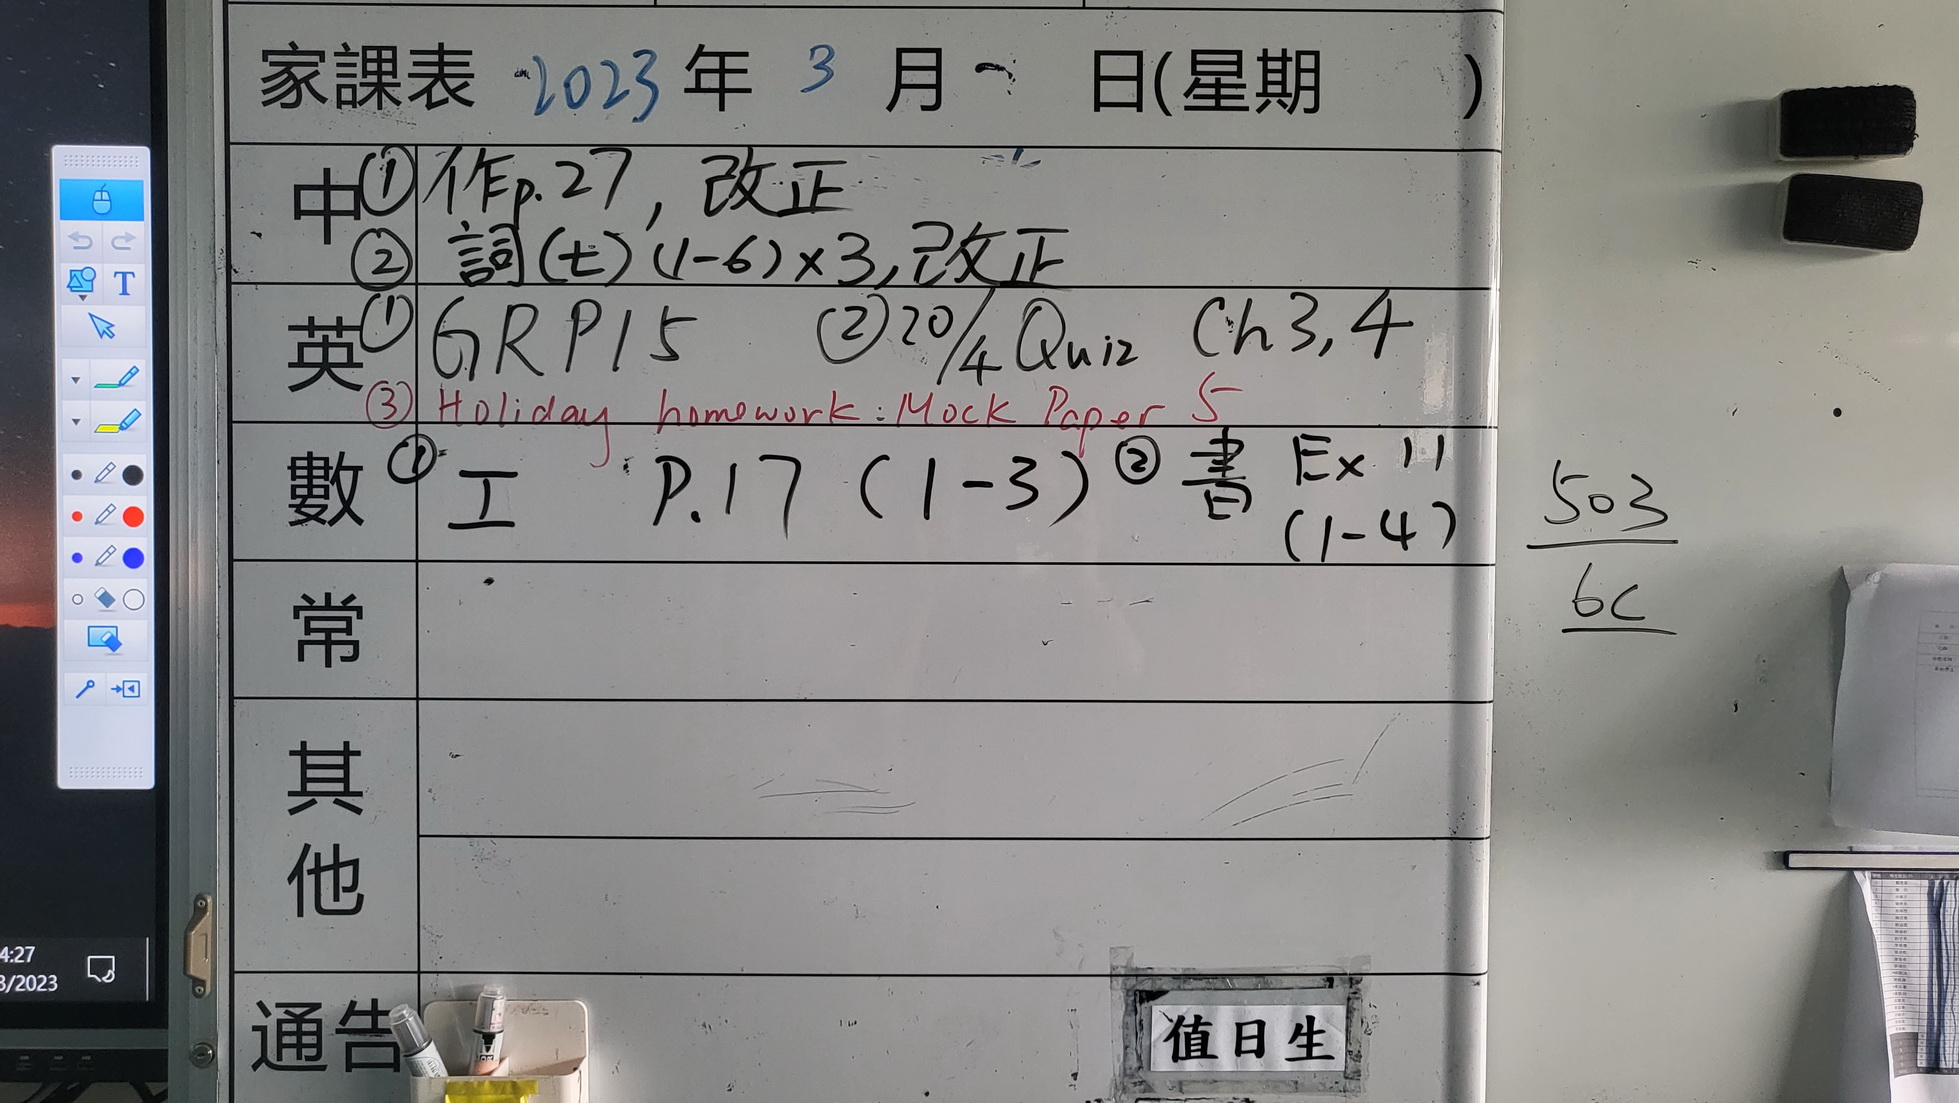 家課表 2023 年 3 月 日(星期 )
中 ① 作p.27, 改正
② 詞(七)(1-6)×3,改正
英 ① GRP15 ② 20/4 Quiz Ch 3, 4
③ Holiday homework: Mock Paper 5
數 ① 工 P.17 (1-3) ② 書 Ex 11
(1-4)
503
6C
常
其
他
通告
值日生
T
4:27
3/2023